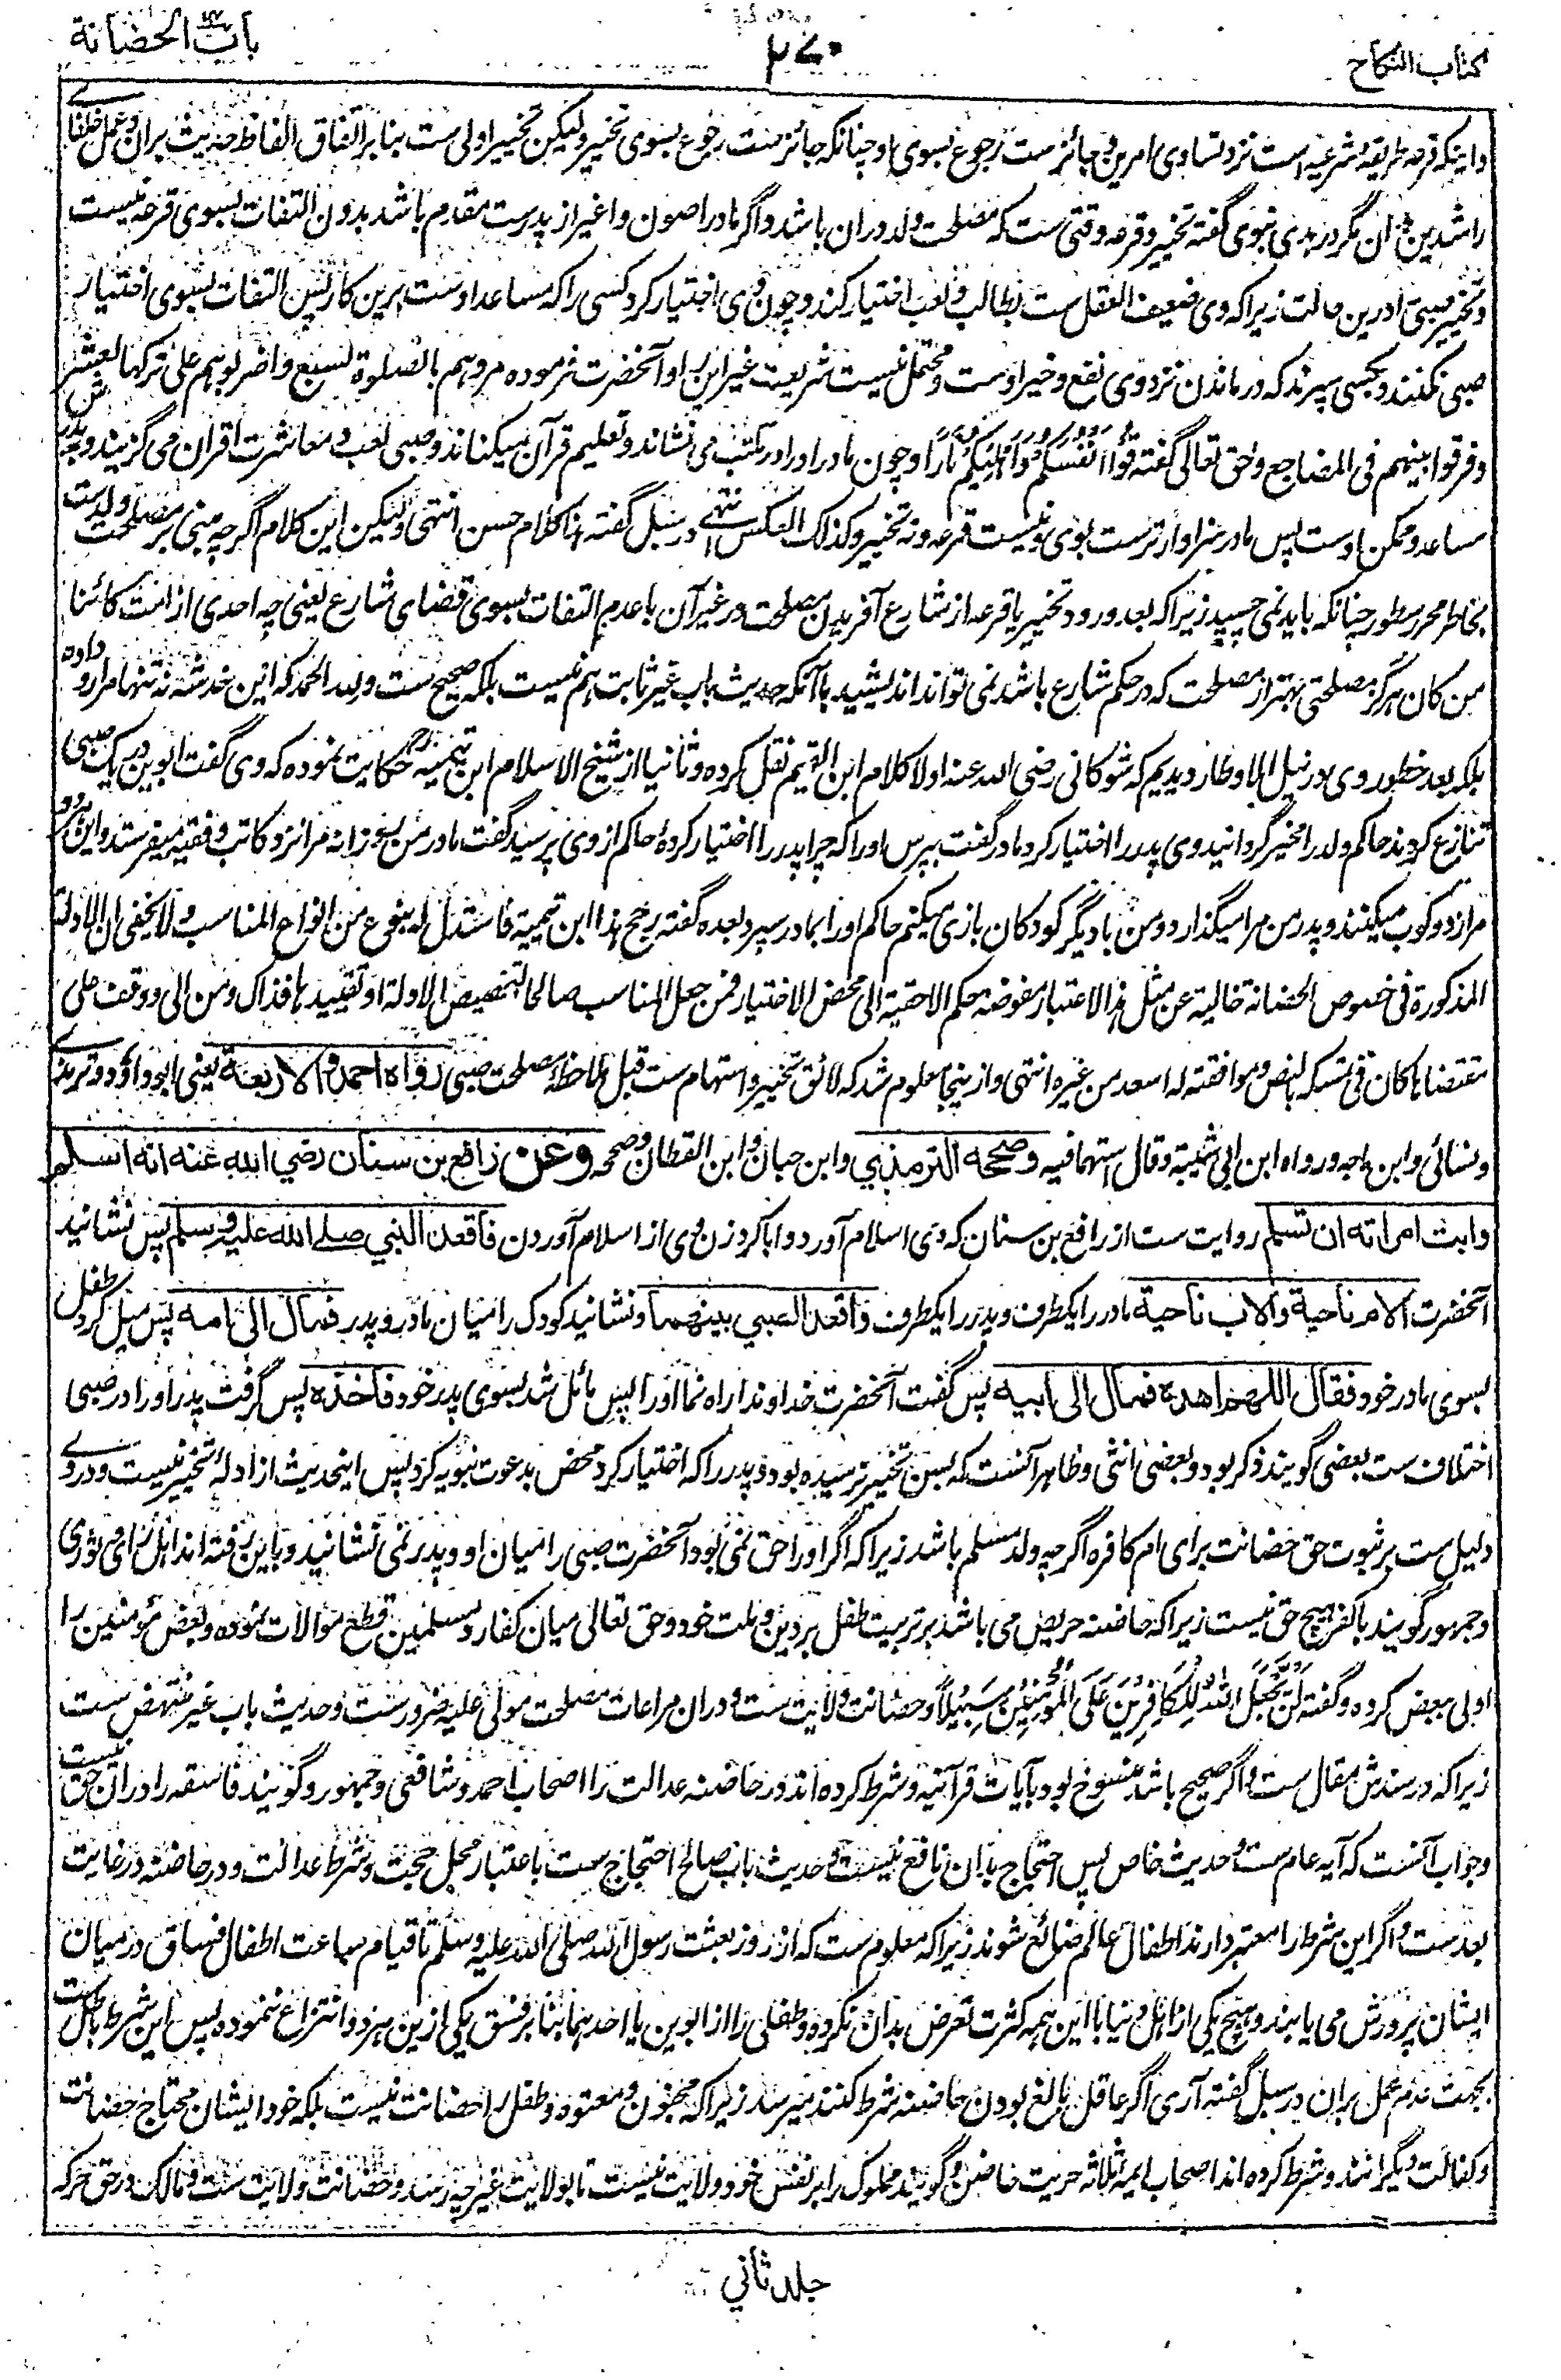 كتاب النكاح
۲۷۰
باب الحضانة
واینکه قرعه طریقهٔ شرعیه است نزد تساوی امرین و جائزست رجوع بسوی او چنانکه جائزست رجوع بسوی تخییر ولیکن تخییر اولی ست بنا بر اتفاق الفاظ حدیث بران و عمل خلفای
راشدین بآن مگر در هدی نبوی گفته تخییر و قرعه وقتی ست که مصلحت ولد دران باشد و اگر مادر اصون و اغیر از پدرست مقدم باشد بدون التفات بسوی قرعه نیست
و تخییر صبی را درین حالت زیرا که وی ضعیف العقل ست بطالت و لعب اختیار کند و چون وی اختیار کرد کسی را که مساعد اوست برین کار پس التفات بسوی اختیار
صبی نکنند و بکسی سپرند که در ماندن نزد وی نفع و خیر اوست و محتمل نیست شریعت غیر این را و آنحضرت فرموده مروهم بالصلوة لسبع واضربوهم علی ترکها لعشر
وفرقوا بینهم فی المضاجع وحق تعالی گفته قُوا أَنْفُسَكُمْ وَأَهْلِيكُمْ نَارًا و چون مادر او را در مکتب می نشاند و تعلیم قرآن میکناند و صبی لعب و معاشرت اقران می گزیند و پدرش
مساعد و ممکن اوست پس مادر سزاوارترست بوی و نیست قرعه و نه تخییر وکذلک العکس انتهی در سبل گفته هذا کلام حسن انتهی ولیکن این کلام اگرچه مبنی بر مصلحت ولدست
بخاطر محرر سطور چنانکه باید نمی چسپد زیرا که بعد ورود تخییر یا قرعه از شارع آفریدن مصلحت در غیر آن با عدم التفات بسوی قضای شارع یعنی چه احدی از امت کائنا
من کان هرگز مصلحتی بهتر از مصلحت که در حکم شارع باشد نمی تواند اندیشید با آنکه حدیث باب غیر ثابت هم نیست بلکه صحیح ست ولله الحمد که این خدشه نه تنها مرا رو داده
بلکه بعد خطور وی در نیل الاوطار دیدیم که شوکانی رضی الله عنه اولا کلام ابن القیم نقل کرده و ثانیا از شیخ الاسلام ابن تیمیه رح حکایت نموده که وی گفت ابوین در یک صبی
تنازع کردند حاکم ولد را مخیر گردانید وی پدر را اختیار کرد مادر گفت بپرس او را که چرا پدر را اختیار کرده حاکم از وی پرسید گفت مادر من هر روز مرا نزد کاتب و فقیه میفرستد و این هر دو
مرا زد و کوب میکنند و پدر من مرا میگذارد و من با دیگر کودکان بازی میکنم حاکم او را بمادر سپرد بعده گفته رجح هذا ابن تیمیة فاستدل له بنوع من انواع المناسب ولا یخفی ان الادلة
المذکورة فی خصوص الحضانة خالیة عن مثل هذا الاعتبار مفوضة حکم الاحقیة الی محض الاختیار فمن جعل المناسب صالحا لتخصیص الادلة او تقییدها فذاک ومن ابی ووقف علی
مقتضاها کان فی تمسکه بالنص وموافقته له اسعد من غیره انتهی و از ینجا معلوم شد که لائق تخییر و استهام ست قبل ملاحظهٔ مصلحت صبی رواه احمد والاربعة یعنی ابو داود و ترمذی
و نسائی و ابن ماجه و رواه ابن ابی شیبة وقال استهما فیه وصححه الترمذي و ابن حبان و ابن القطان وصححه وعن رافع بن سنان رضي الله عنه انه اسلم
وابت امراته ان تسلم روایت ست از رافع بن سنان که وی اسلام آورد و ابا کرد زن وی از اسلام آوردن فاقعد النبي صلے الله عليه وسلم پس نشانید
آنحضرت الام ناحية والاب ناحية مادر را یکطرف و پدر را یکطرف واقعد الصبي بينهما و نشانید کودک را میان مادر و پدر فمال الی امه پس میل کرد طفل
بسوی مادر خود فقال اللهم اهده فمال الی ابيه پس گفت آنحضرت خداوندا راه نما او را پس مائل شد بسوی پدر خود فاخذه پس گرفت پدر او را در صبی
اختلاف ست بعضی گویند ذکر بود و بعضی انثی و ظاهر آنست که بسن تخییر نرسیده بود و پدر را که اختیار کرد محض بدعوت نبویه کرد پس اینحدیث از ادلهٔ تخییر نیست و دروی
دلیل ست بر ثبوت حق حضانت برای ام کافره اگرچه ولد مسلم باشد زیرا که اگر او را حق نمی بود آنحضرت صبی را میان او و پدر نمی نشانید و باین رفته اند اهل رای و ثوری
و جمهور گویند با کفر هیچ حق نیست زیرا که حاضنه حریص می باشد بر تربیت طفل بر دین و ملت خود و حق تعالی میان کفار و مسلمین قطع موالات نموده و بعض مؤمنین را
اولی ببعض کرده و گفته لَنْ يَجْعَلَ اللهُ لِلْكَافِرِينَ عَلَى الْمُؤْمِنِينَ سَبِيلًا و حضانت ولایت ست و دران مراعات مصلحت مولی علیه ضرورست و حدیث باب غیر منتهض ست
زیرا که در سندش مقال ست و اگر صحیح باشد منسوخ بود بآیات قرآنیه و شرط کرده اند در حاضنه عدالت را اصحاب احمد و شافعی و جمهور و گویند فاسقه را دران حق نیست
و جواب آنست که آیه عام ست و حدیث خاص پس احتجاج بدان نافع نیست و حدیث باب صالح احتجاج ست باعتبار محل حجت و شرط عدالت و در حاضنه در غایت
بعدست و اگر این شرط را معتبر دارند اطفال عالم ضائع شوند زیرا که معلوم ست که از روز بعثت رسول الله صلی الله علیه وسلم تا قیام ساعت اطفال فساق در میان
ایشان پرورش می یابند و هیچ یکی از اهل دنیا با این همه کثرت تعرض بدان نکرده و طفلی را از ابوین یا احدهما بنا بر فسق یکی ازین هر دو انتزاع ننموده پس این شرط باطل ست
بجهت عدم عمل بران در سبل گفته آری اگر عاقل بالغ بودن حاضنه شرط کنند میرسد زیرا که مجنون و معتوه و طفل را حضانت نیست بلکه خود ایشان محتاج حضانت
و کفالت دیگرانند و شرط کرده اند اصحاب ایمه ثلاثه حریت حاضن و گویند مملوک را بر نفس خود ولایت نیست تا بولایت غیر چه رسد و حضانت ولایت ست و مالک در حق حرکه
جلد ثاني